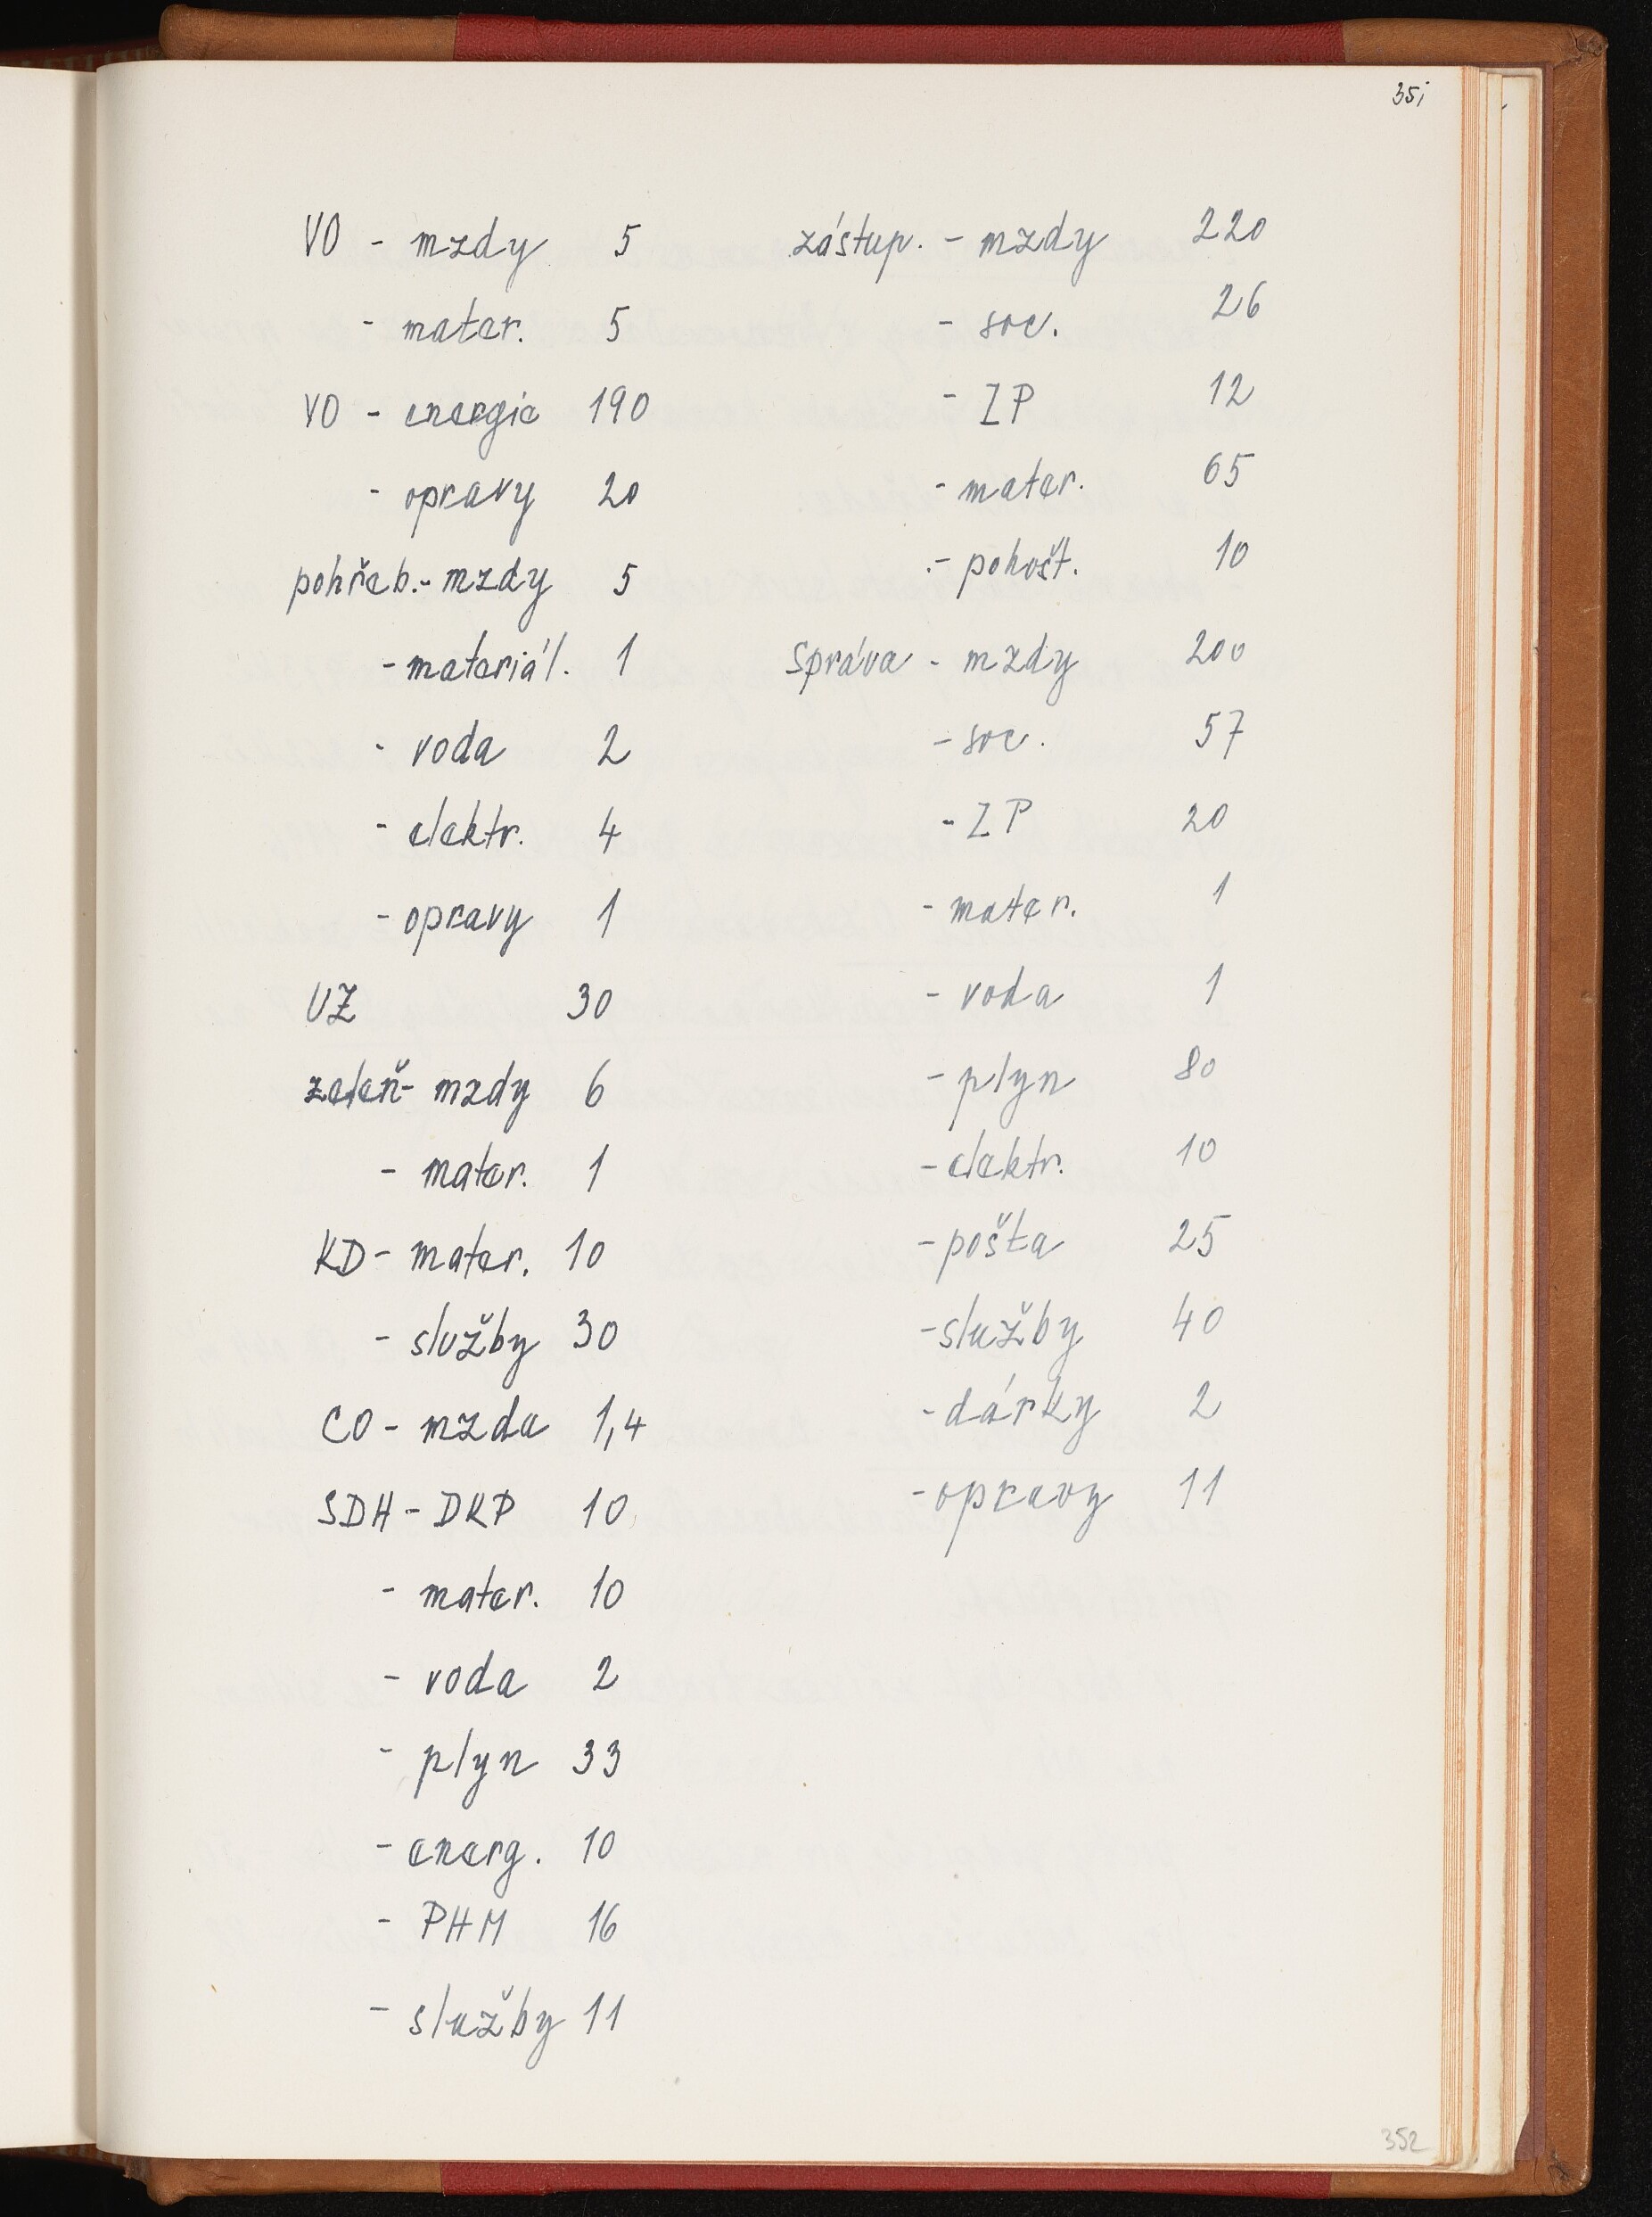 351
VO - mzdy 5
- mater. 5
VO - energie 190
- opravy 20
pohřeb. - mzdy 5
- materiál. 1
- voda 2
- elektr. 4
- opravy 1
UZ 30
zeleň - mzdy 6
- mater. 1
KD - mater. 10
- služby 30
CO - mzda 1,4
SDH - DKP 10
- mater. 10
- voda 2
- plyn 33
- energ. 10
- PHM 16
- služby 11
zástup. - mzdy 220
- soc. 26
- ZP 12
- mater. 65
- pohošt. 10
Správa - mzdy 200
- soc. 57
- ZP 20
- mater. 1
- voda 1
- plyn 80
- elektr. 10
- pošta 25
- služby 40
- dárky 2
- opravy 11
352